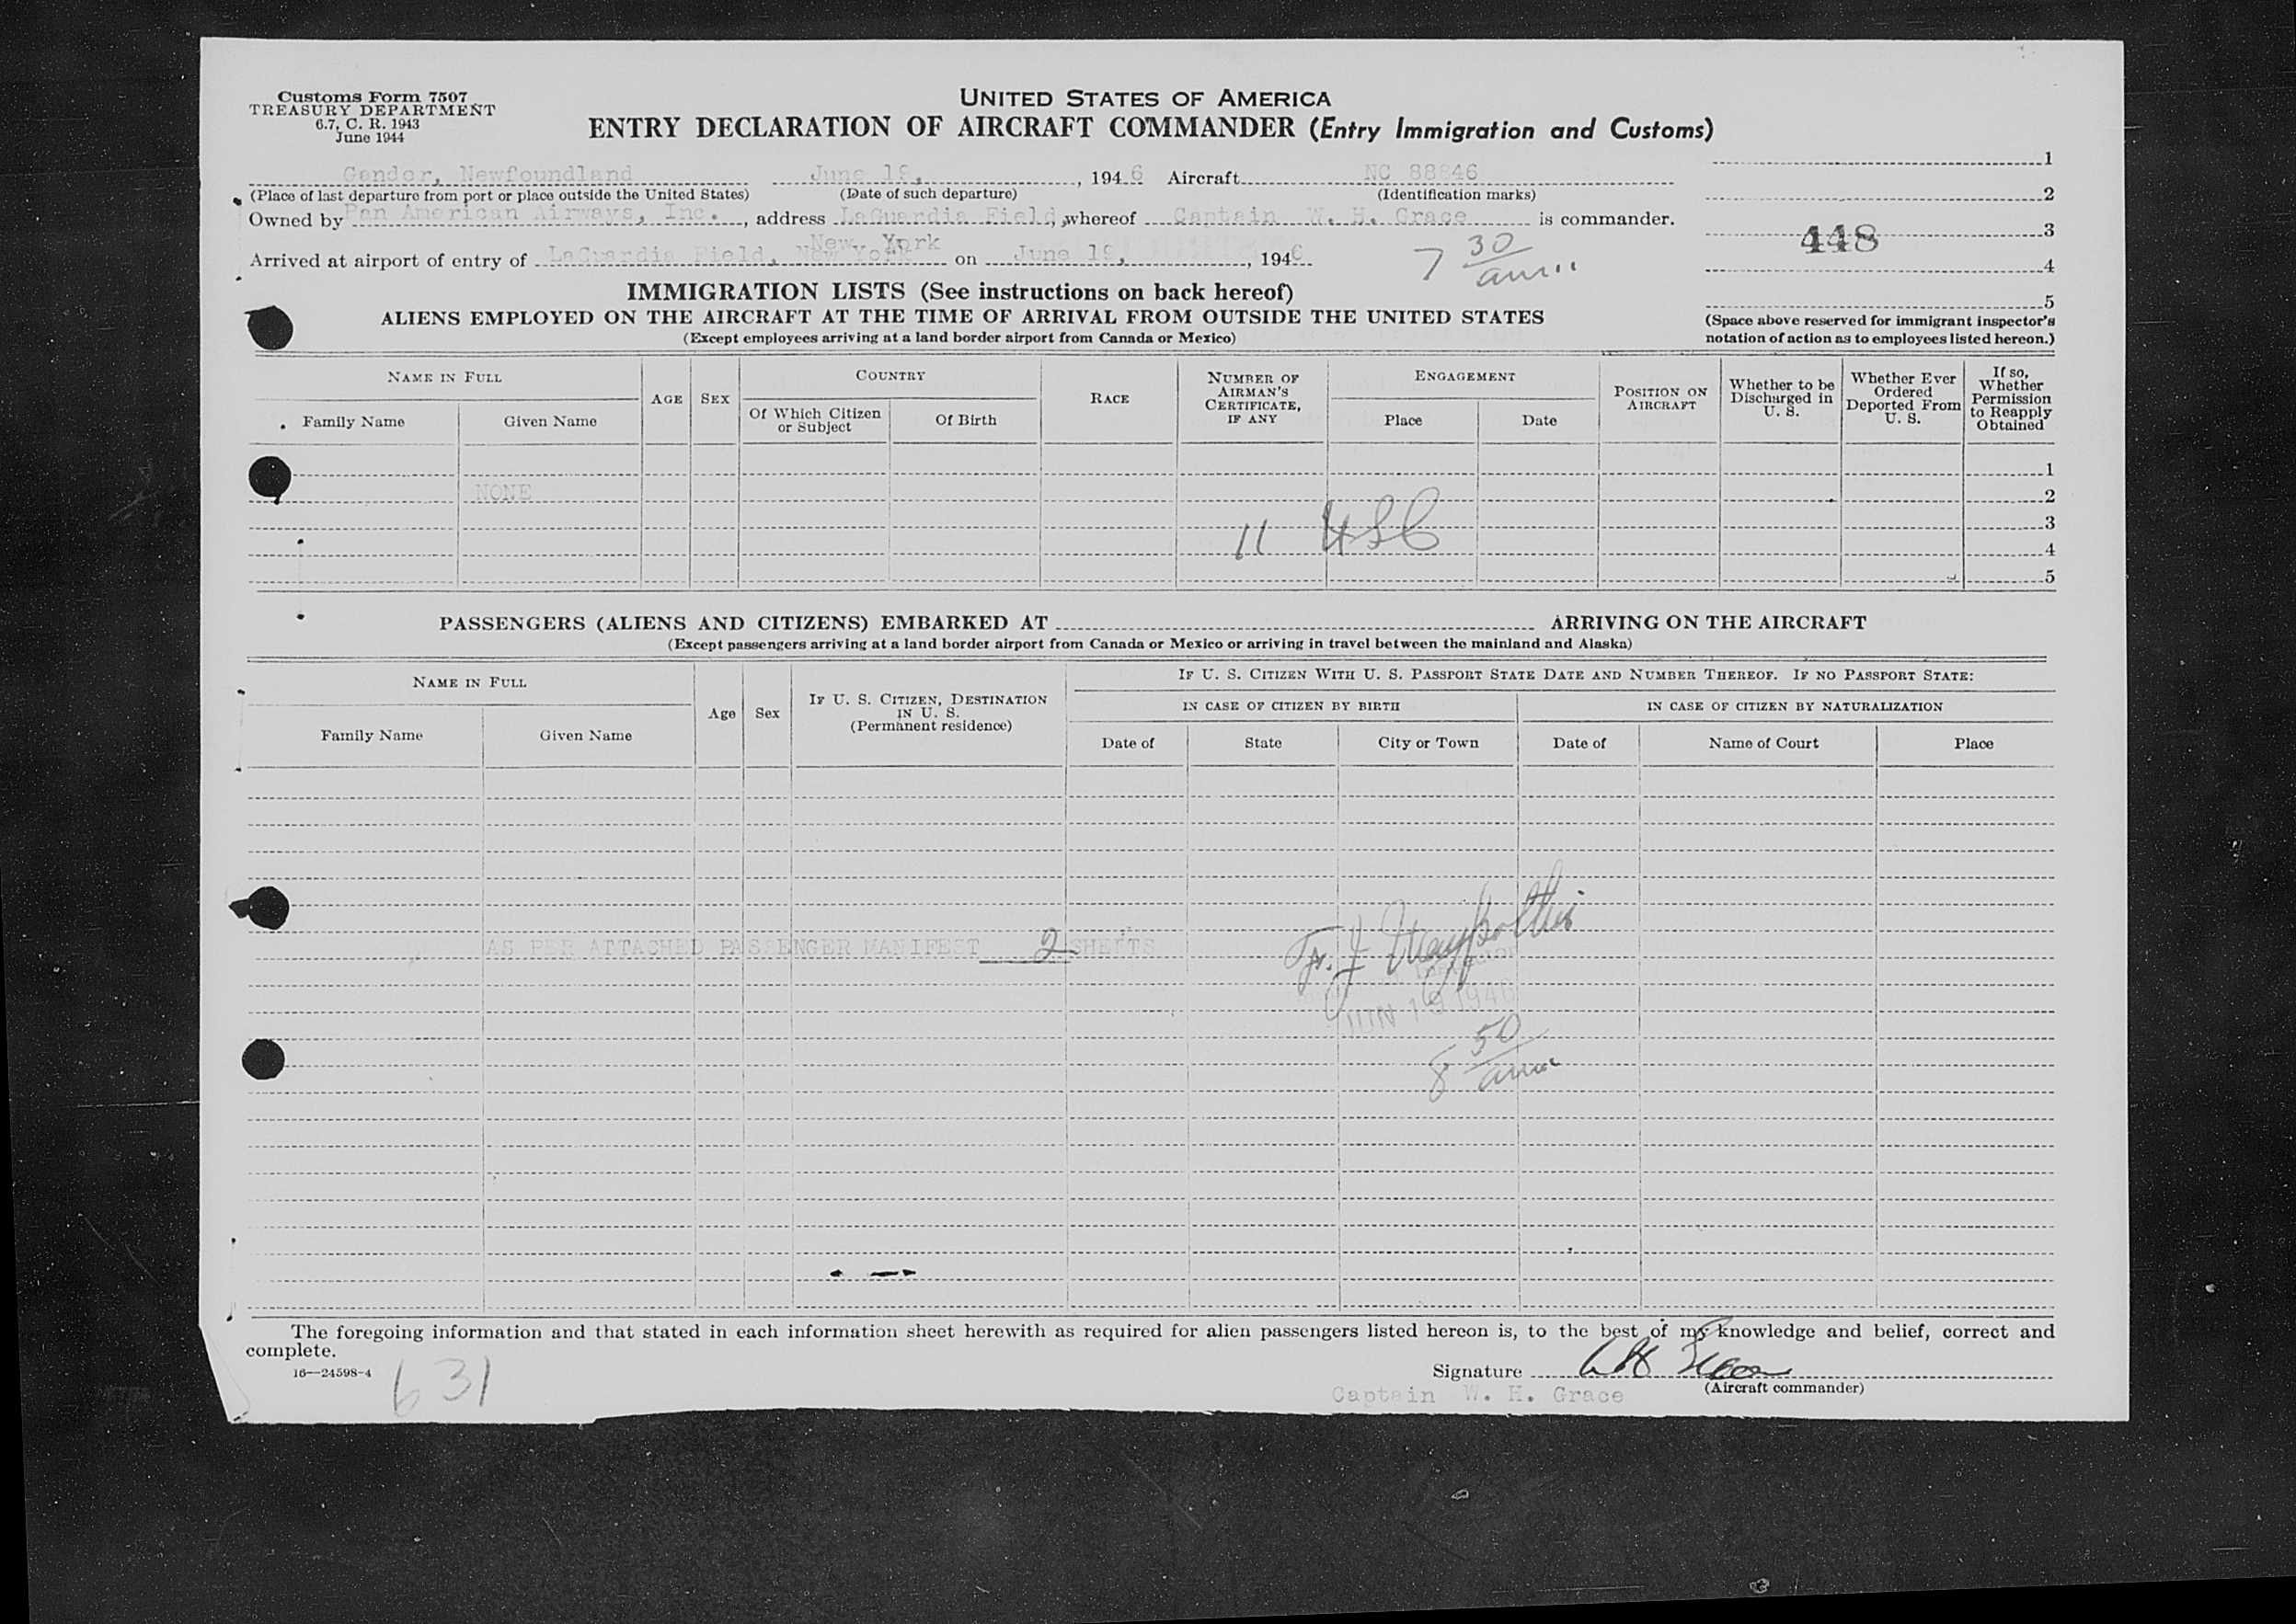 Customs Form 7507
TREASURY DEPARTMENT
6.7, C. R. 1943
June 1944
UNITED STATES OF AMERICA
ENTRY DECLARATION OF AIRCRAFT COMMANDER (Entry Immigration and Customs)
Gander, Newfoundland June 19, 1946 Aircraft NC 88846
(Place of last departure from port or place outside the United States) (Date of such departure) (Identification marks)
Owned by Pan American Airways, Inc., address LaGuardia Field, whereof Captain W. H. Grace is commander.
New York
Arrived at airport of entry of LaGuardia Field, New York on June 19, 1946
7 30/am
1
2
448 3
4
5
(Space above reserved for immigrant inspector's
notation of action as to employees listed hereon.)
IMMIGRATION LISTS (See instructions on back hereof)
ALIENS EMPLOYED ON THE AIRCRAFT AT THE TIME OF ARRIVAL FROM OUTSIDE THE UNITED STATES
(Except employees arriving at a land border airport from Canada or Mexico)
NAME IN FULL
Family Name Given Name
AGE SEX
COUNTRY
Of Which Citizen or Subject Of Birth
RACE
NUMBER OF AIRMAN'S CERTIFICATE, IF ANY
ENGAGEMENT
Place Date
POSITION ON AIRCRAFT
Whether to be Discharged in U. S.
Whether Ever Ordered Deported From U. S.
If so, Whether Permission to Reapply Obtained
1
NONE 2
3
11 4
5
PASSENGERS (ALIENS AND CITIZENS) EMBARKED AT ARRIVING ON THE AIRCRAFT
(Except passengers arriving at a land border airport from Canada or Mexico or arriving in travel between the mainland and Alaska)
NAME IN FULL
Family Name Given Name
Age Sex
IF U. S. CITIZEN, DESTINATION IN U. S.
(Permanent residence)
IF U. S. CITIZEN WITH U. S. PASSPORT STATE DATE AND NUMBER THEREOF. IF NO PASSPORT STATE:
IN CASE OF CITIZEN BY BIRTH IN CASE OF CITIZEN BY NATURALIZATION
Date of State City or Town Date of Name of Court Place
AS PER ATTACHED PASSENGER MANIFEST 2 SHEETS
JUN 19 1946
8 50/am
The foregoing information and that stated in each information sheet herewith as required for alien passengers listed hereon is, to the best of my knowledge and belief, correct and
complete.
16—24598-4
631
Signature W H Grace
(Aircraft commander)
Captain W. H. Grace